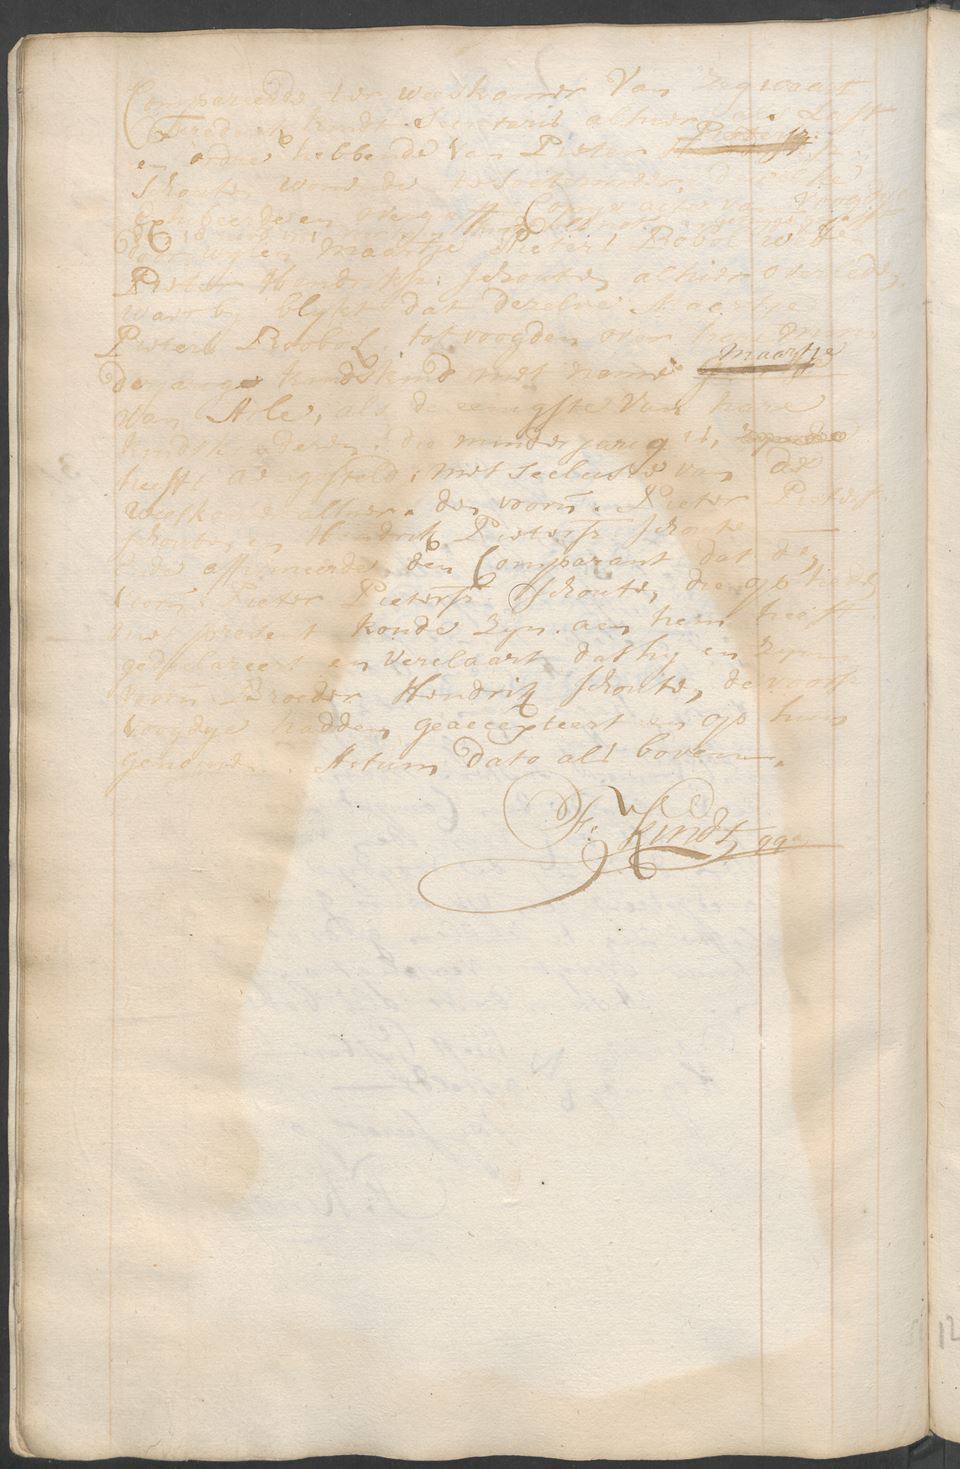 Compareerde ter weeskamer van
Frederik Kindt Secretaris alhier als Last
en ordre hebbende van Pieter Pieterss:
Schoute, wonende te
en overgaff Copie
voor wylen Maartje Pieters Robol wed:e
Pieter Hendrikss: Schoute, alhier overleden,
waar by blykt dat dezelve Maartje
Pieters Roobol tot voogden over haar minder
jarige kindskind met name Maartje
van Arle, als de eenigste van hare
kindskinderen die minderjarig is,
heeft aengesteld, met seclusie van de
weeskamer alhier, den voorn. Pieter Pieterss:
Schoute, en Hendrik Pieterss: Schoute
ende affirmeerde den Comparant dat den
voorn: Pieter Pieterss: Schoute, die op heden
niet present konde zyn aen hem heeft
gedeclareert en verclaart dat hy en zyn
voorn: Broeder Hendrik Schoute, de voors:
voogdye hadden geaccepteert en op hun
genomen. Actum dato als boven.
F: Kindt, qqa
12